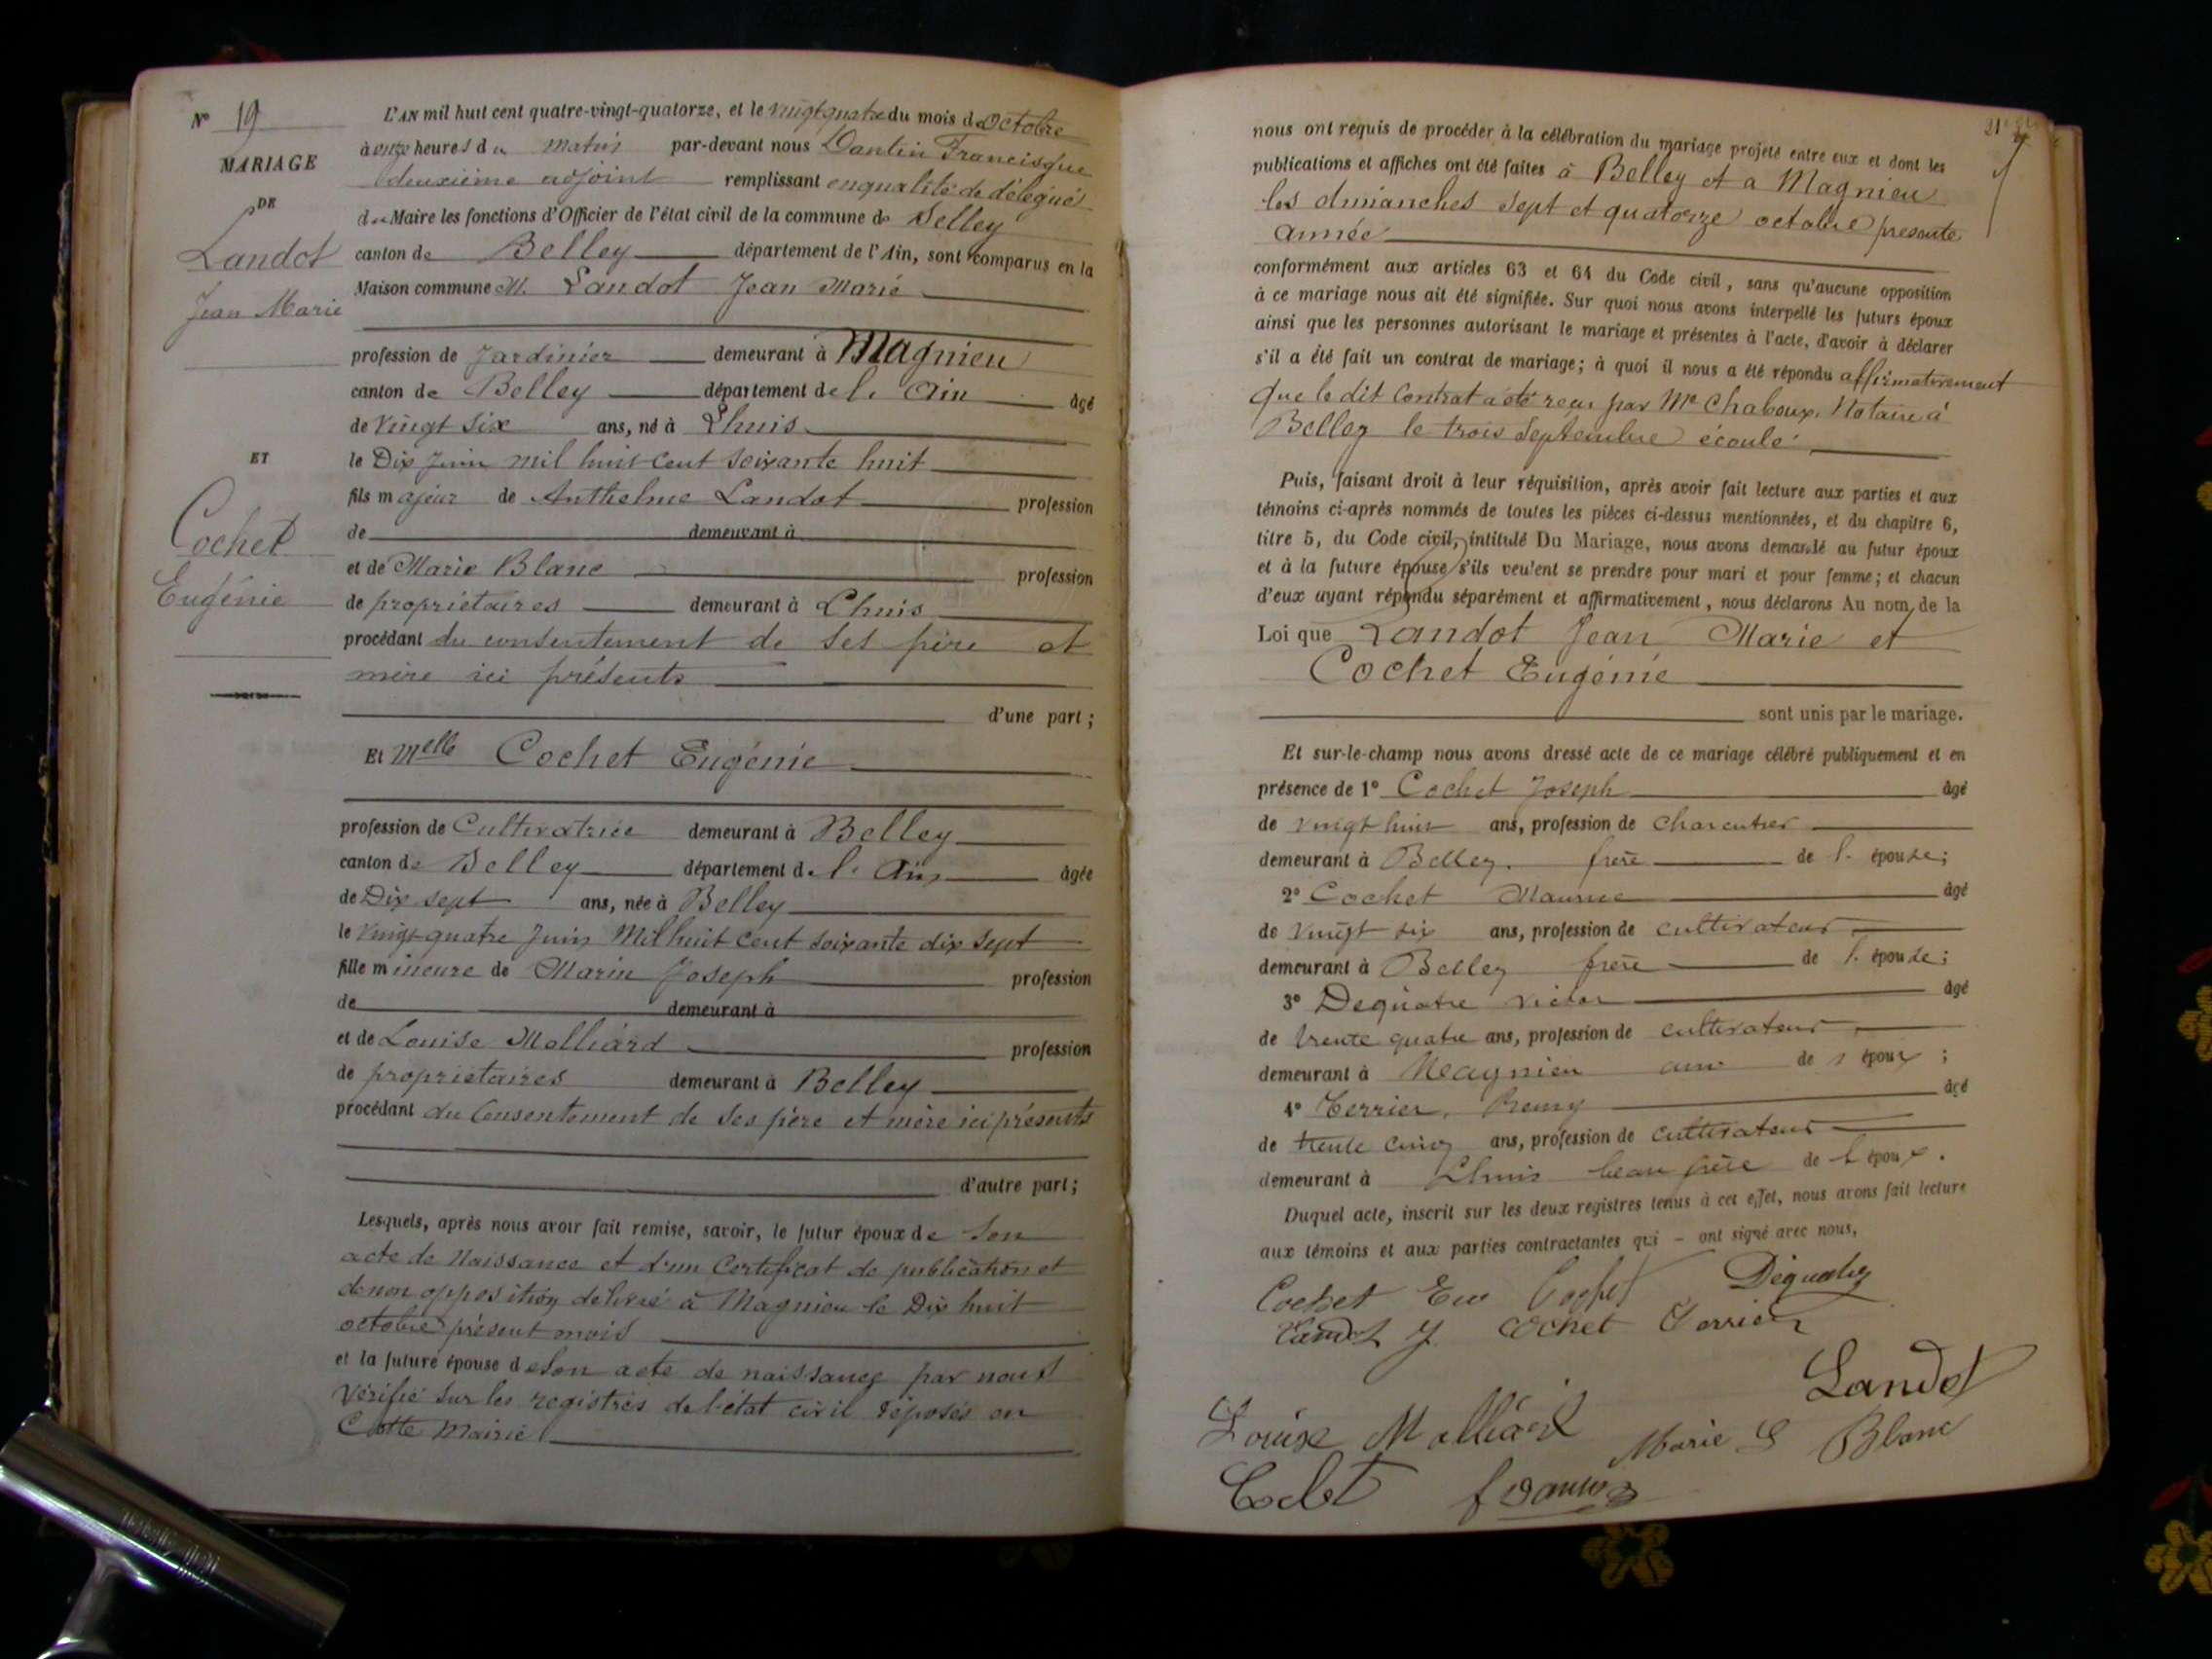 N° 19
MARIAGE
DE
Landot
Jean Marie
ET
Cochet
Eugénie
L'AN mil huit cent quatre-vingt-quatorze, et le vingt quatre du mois d'Octobre
à onze heures du matin par-devant nous Dantin Francisque
deuxième adjoint remplissant en qualité de délégué
du Maire les fonctions d'Officier de l'état civil de la commune de Belley
canton de Belley département de l'Ain, sont comparus en la
Maison commune M. Landot Jean Marie
profession de Jardinier demeurant à Magnieu
canton de Belley département de l'Ain âgé
de vingt six ans, né à Lhuis
le Dix Juin mil huit cent soixante huit
fils majeur de Anthelme Landot profession
de demeurant à
et de Marie Blanc profession
de propriétaires demeurant à Lhuis
procédant du consentement de ses père et
mère ici présents
d'une part;
Et Melle Cochet Eugénie
profession de Cultivatrice demeurant à Belley
canton de Belley département de l'Ain âgée
de Dix sept ans, née à Belley
le vingt quatre Juin Mil huit cent soixante dix sept
fille mineure de Marin Joseph profession
de demeurant à
et de Louise Molliard profession
de propriétaires demeurant à Belley
procédant du Consentement de ses père et mère ici présents
d'autre part;
Lesquels, après nous avoir fait remise, savoir, le futur époux de son
acte de Naissance et d'un Certificat de publication et
de non opposition delivré à Magnieu le Dix huit
octobre présent mois
et la future épouse de son acte de naissance par nous
vérifié sur les registres de l'état civil déposés en
Cette Mairie
21
nous ont requis de procéder à la célébration du mariage projeté entre eux et dont les
publications et affiches ont été faites à Belley et a Magnieu
les dimanches sept et quatorze octobre presente
année
conformément aux articles 63 et 64 du Code civil, sans qu'aucune opposition
à ce mariage nous ait été signifiée. Sur quoi nous avons interpellé les futurs époux
ainsi que les personnes autorisant le mariage et présentes à l'acte, d'avoir à déclarer
s'il a été fait un contrat de mariage; à quoi il nous a été répondu affirmativement
Que le dit Contrat a été reçu par Me Chaboux, Notaire à
Belley le trois Septembre écoulé
Puis, faisant droit à leur réquisition, après avoir fait lecture aux parties et aux
témoins ci-après nommés de toutes les pièces ci-dessus mentionnées, et du chapitre 6,
titre 5, du Code civil, intitulé Du Mariage, nous avons demandé au futur époux
et à la future épouse s'ils veulent se prendre pour mari et pour femme; et chacun
d'eux ayant répondu séparément et affirmativement, nous déclarons Au nom de la
Loi que Landot Jean Marie et
Cochet Eugénie
sont unis par le mariage.
Et sur-le-champ nous avons dressé acte de ce mariage célébré publiquement et en
présence de 1° Cochet Joseph âgé
de vingt huit ans, profession de charcutier
demeurant à Belley. frère de l'épouse;
2° Cochet Maurice âgé
de vingt six ans, profession de cultivateur
demeurant à Belley frère de l'épouse;
3° Dequatre Victor âgé
de trente quatre ans, profession de cultivateur
demeurant à Magnieu ami de l'époux;
4° Terrier, Remy âgé
de trente cinq ans, profession de cultivateur
demeurant à Lhuis beau frère de l'époux.
Duquel acte, inscrit sur les deux registres tenus à cet effet, nous avons fait lecture
aux témoins et aux parties contractantes qui - ont signé avec nous,
Cochet Cochet
Landot J Cochet Terrier
Landot
Louise Molliard Marie Blanc